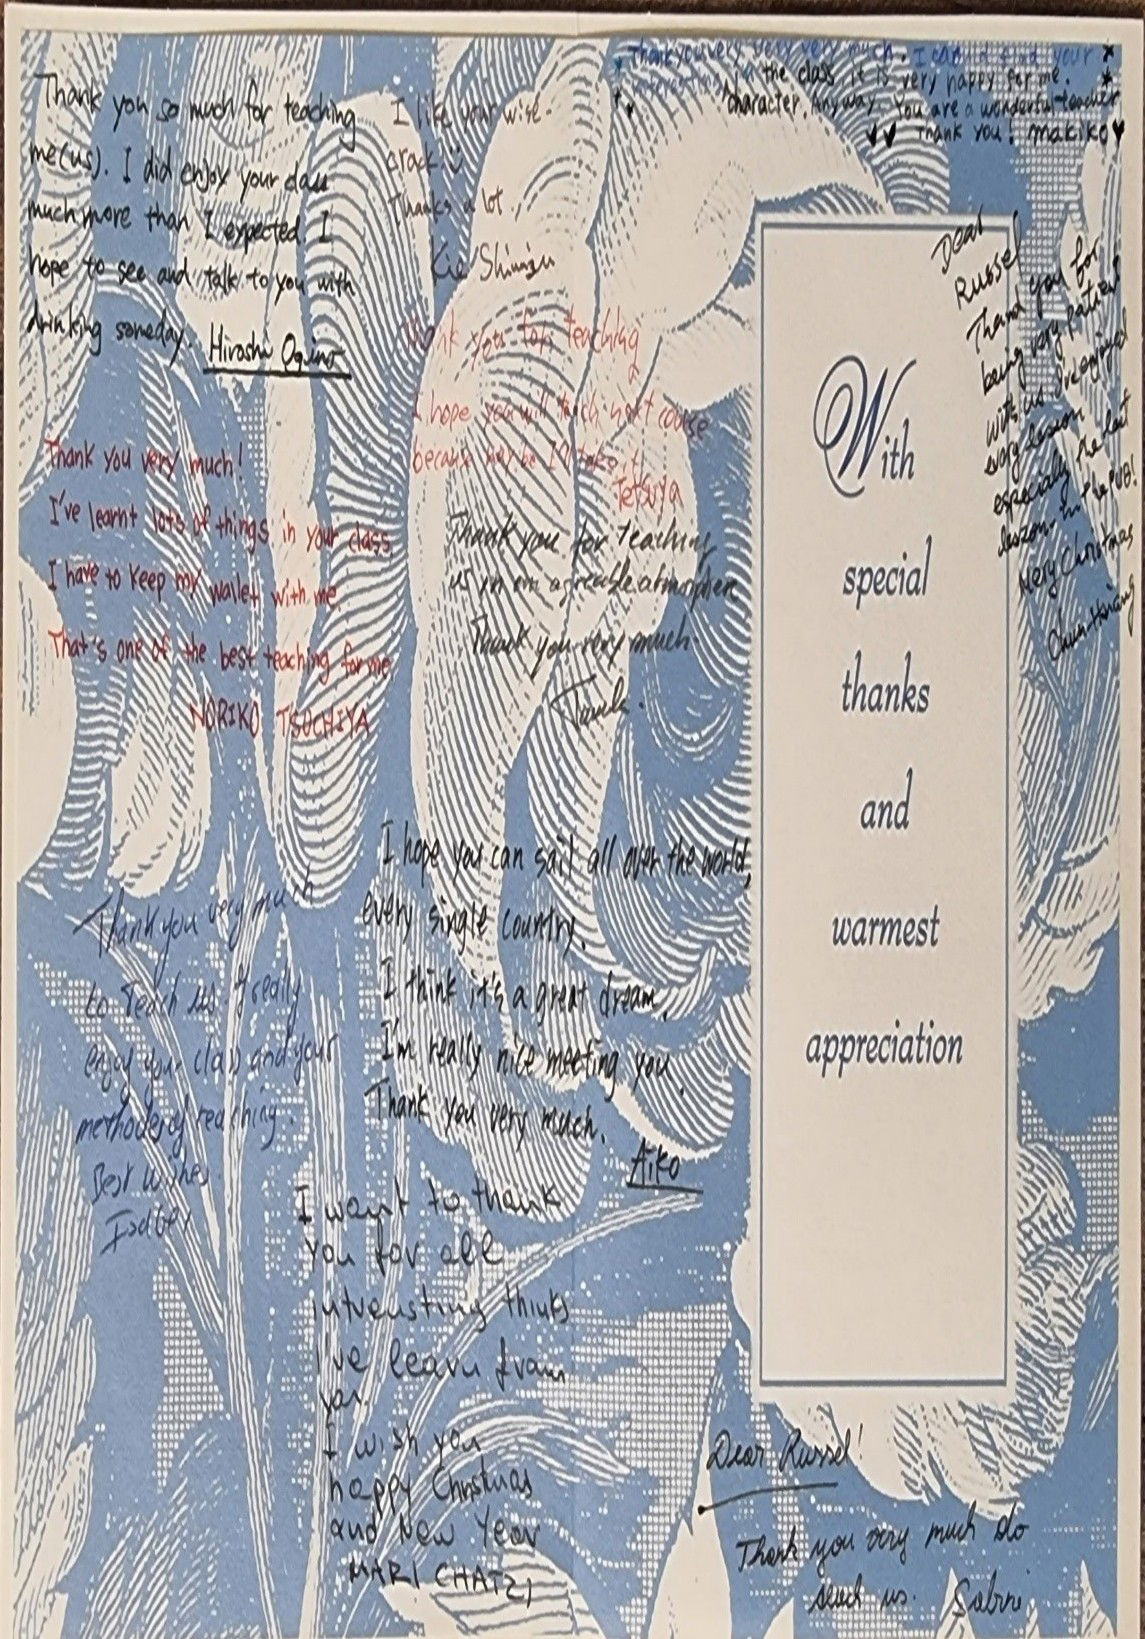 Thank you so much for teaching
me(us). I did enjoy your class
much more than I expected I
hope to see and talk to you with
drinking someday.
Hiroshi Ogino
I like your wise
crack
Thanks a lot,
Kie Shimizu
Thank you very very very much. I can find your
interesting
character. Anyway You are a wonderful teacher
in the class it is very happy for me.
Thank you! makiko
Dear
Russel
Thank you for
being very patient
with us. I've enjoyed
every lesson
especially the last
lesson in the PUB!
Mery Christmas
Chun-Hsiang
Thank you for teaching
I hope you will teach next course
because may be I'll take it
Tetsuya
Thank you very much!
I've learnt lots of things in your class
I have to keep my wallet with me
That's one of the best teaching for me
NORIKO TSUCHIYA
Thank you for teaching
us in an agreable atmospher
Thank you very much.
With
special
thanks
and
warmest
appreciation
I hope you can sail all over the world,
every single country.
I think it's a great dream.
I'm really nice meeting you.
Thank you very much.
Aiko
Thank you very much
to teach us I really
enjoy your class and your
methodes of teaching.
Best wishes
I want to thank
you for all
intreusting thinks
I've learn from
you.
I wish you
happy Christmas
and New Year
MARI CHATZI
Dear Russel!
Thank you very much do
teach us. Sabine